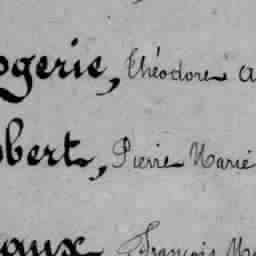 ogerie, Théodore A
bert, Pierre Marie
aux François M